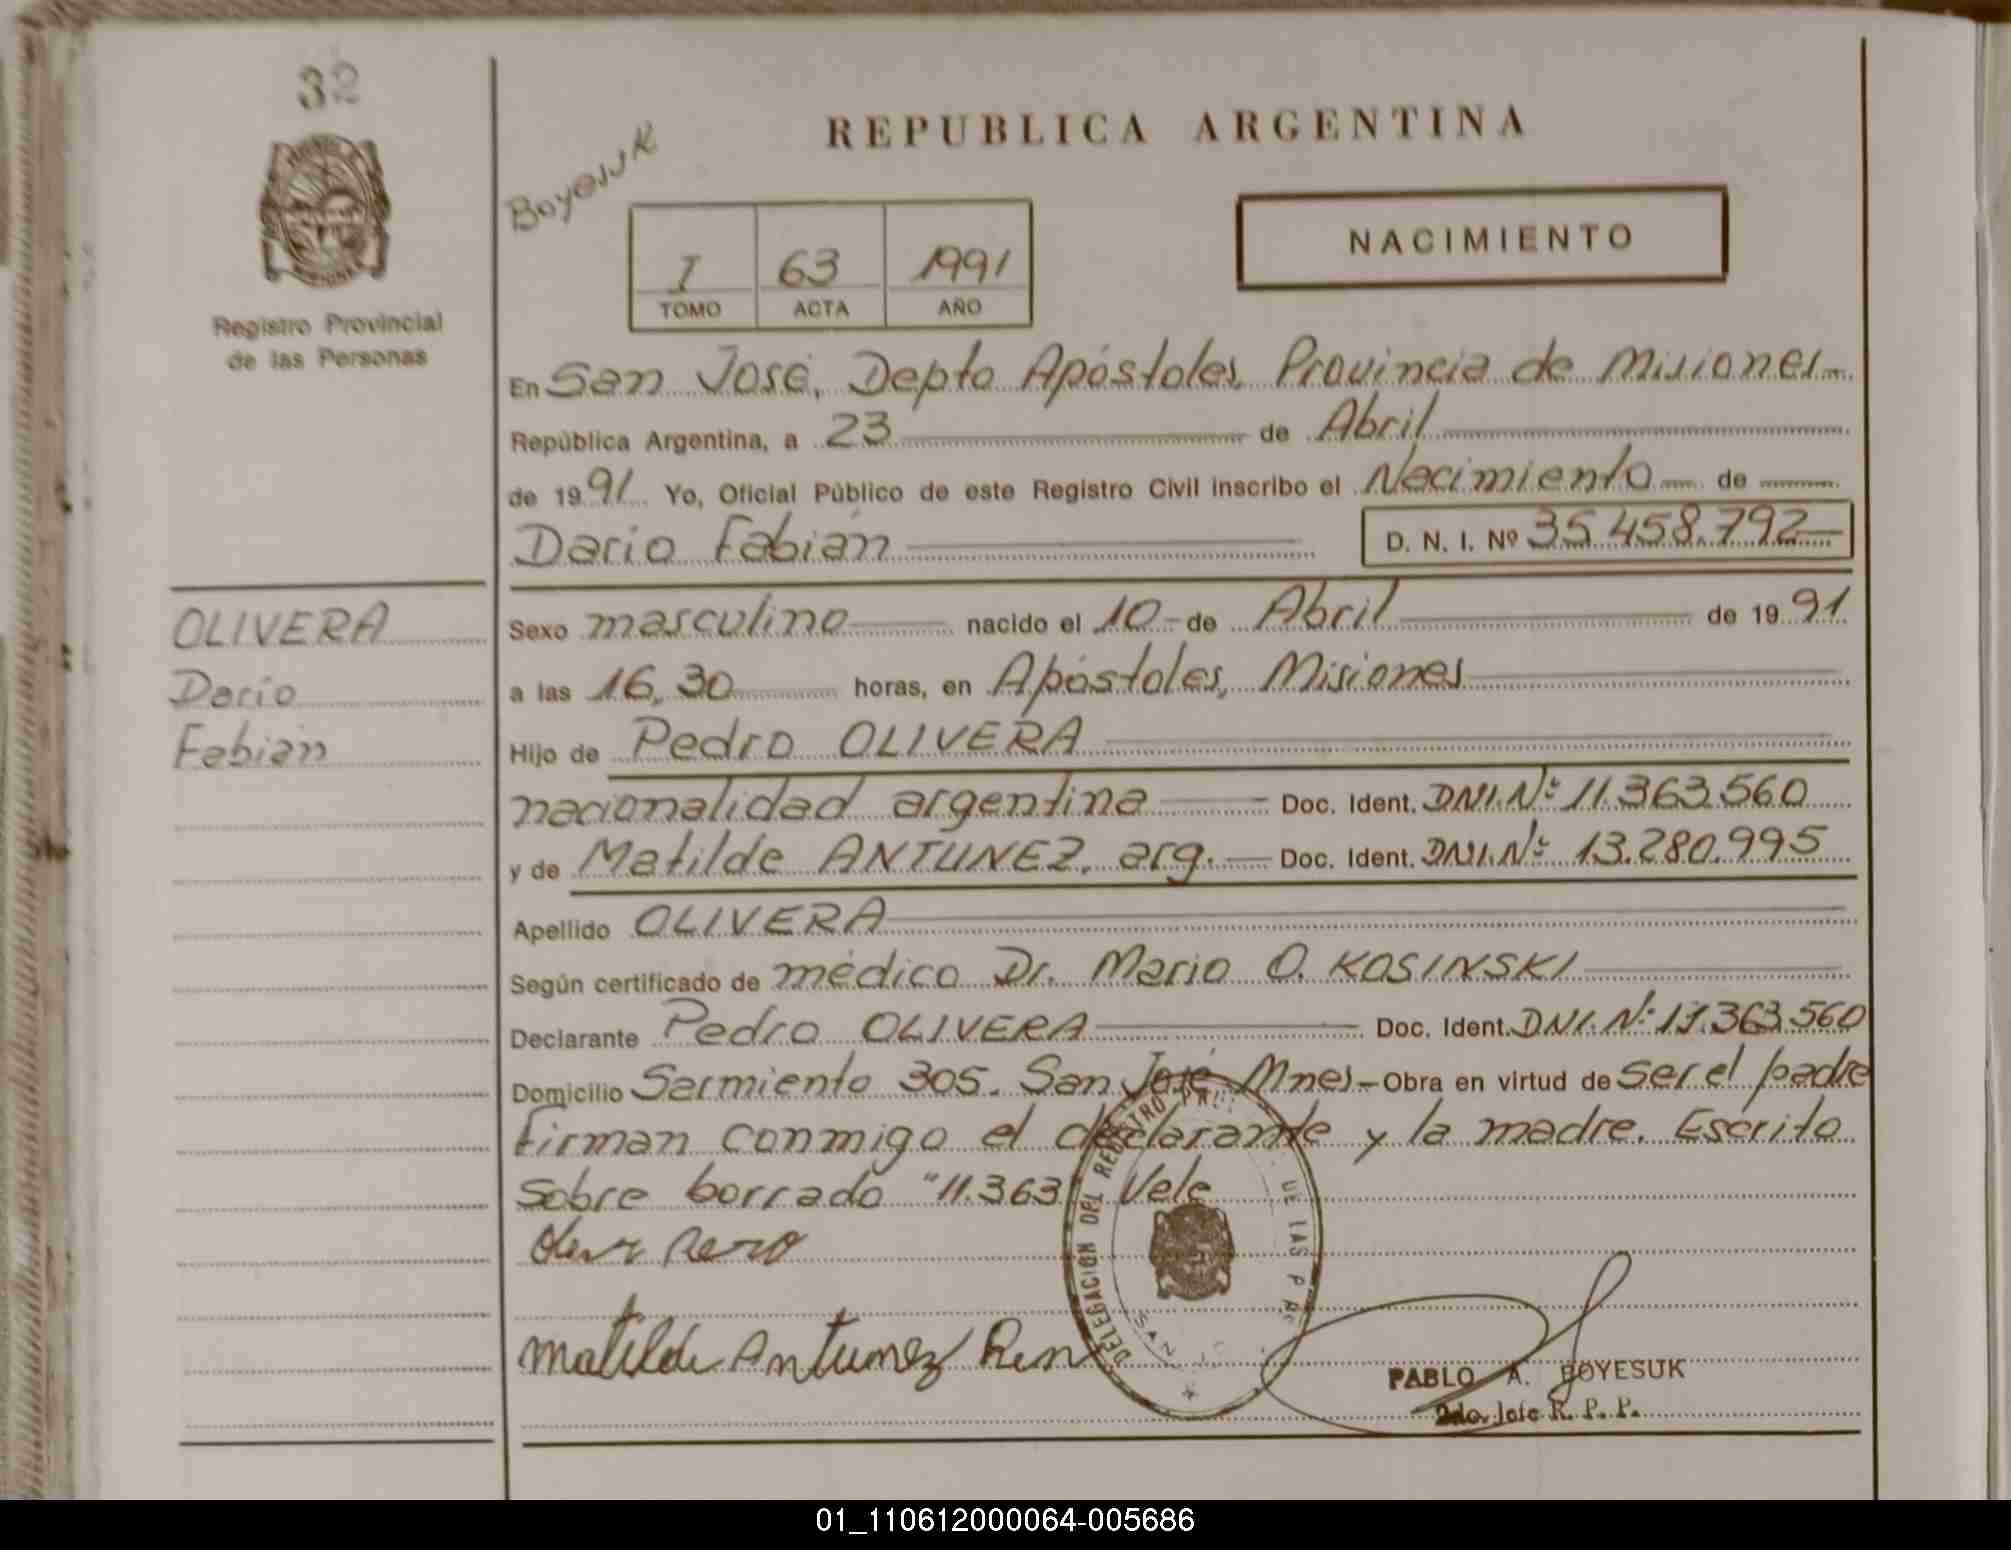 32
Registro Provincial
de las Personas
Boyesuk
REPUBLICA ARGENTINA
NACIMIENTO
I 63 1991
TOMO ACTA AÑO
En San José, Depto Apóstoles, Provincia de Misiones
República Argentina, a 23 de Abril
de 1991 Yo, Oficial Público de este Registro Civil inscribo el Nacimiento de
Dario Fabián D. N. I. Nº 35.458.792
OLIVERA
Dario
Fabián
Sexo masculino nacido el 10 de Abril de 1991
a las 16,30 horas, en Apóstoles, Misiones
Hijo de Pedro OLIVERA
nacionalidad argentina Doc. Ident. DNI.Nº 11.363.560
y de Matilde ANTUNEZ, arg. Doc. Ident. DNI.Nº 13.280.995
Apellido OLIVERA
Según certificado de médico Dr. Mario O. KOSINSKI
Declarante Pedro OLIVERA Doc. Ident. DNI.Nº 11.363.560
Domicilio Sarmiento 305. San José Mnes Obra en virtud de ser el padre
Firman conmigo el declarante y la madre. Escrito
sobre borrado "11.363" Vale
Matilde Antunez
DELEGACION DEL REGISTRO DE LAS
SAN
PABLO A. BOYESUK
2do. Jefe R. P. P.
01_110612000064-005686